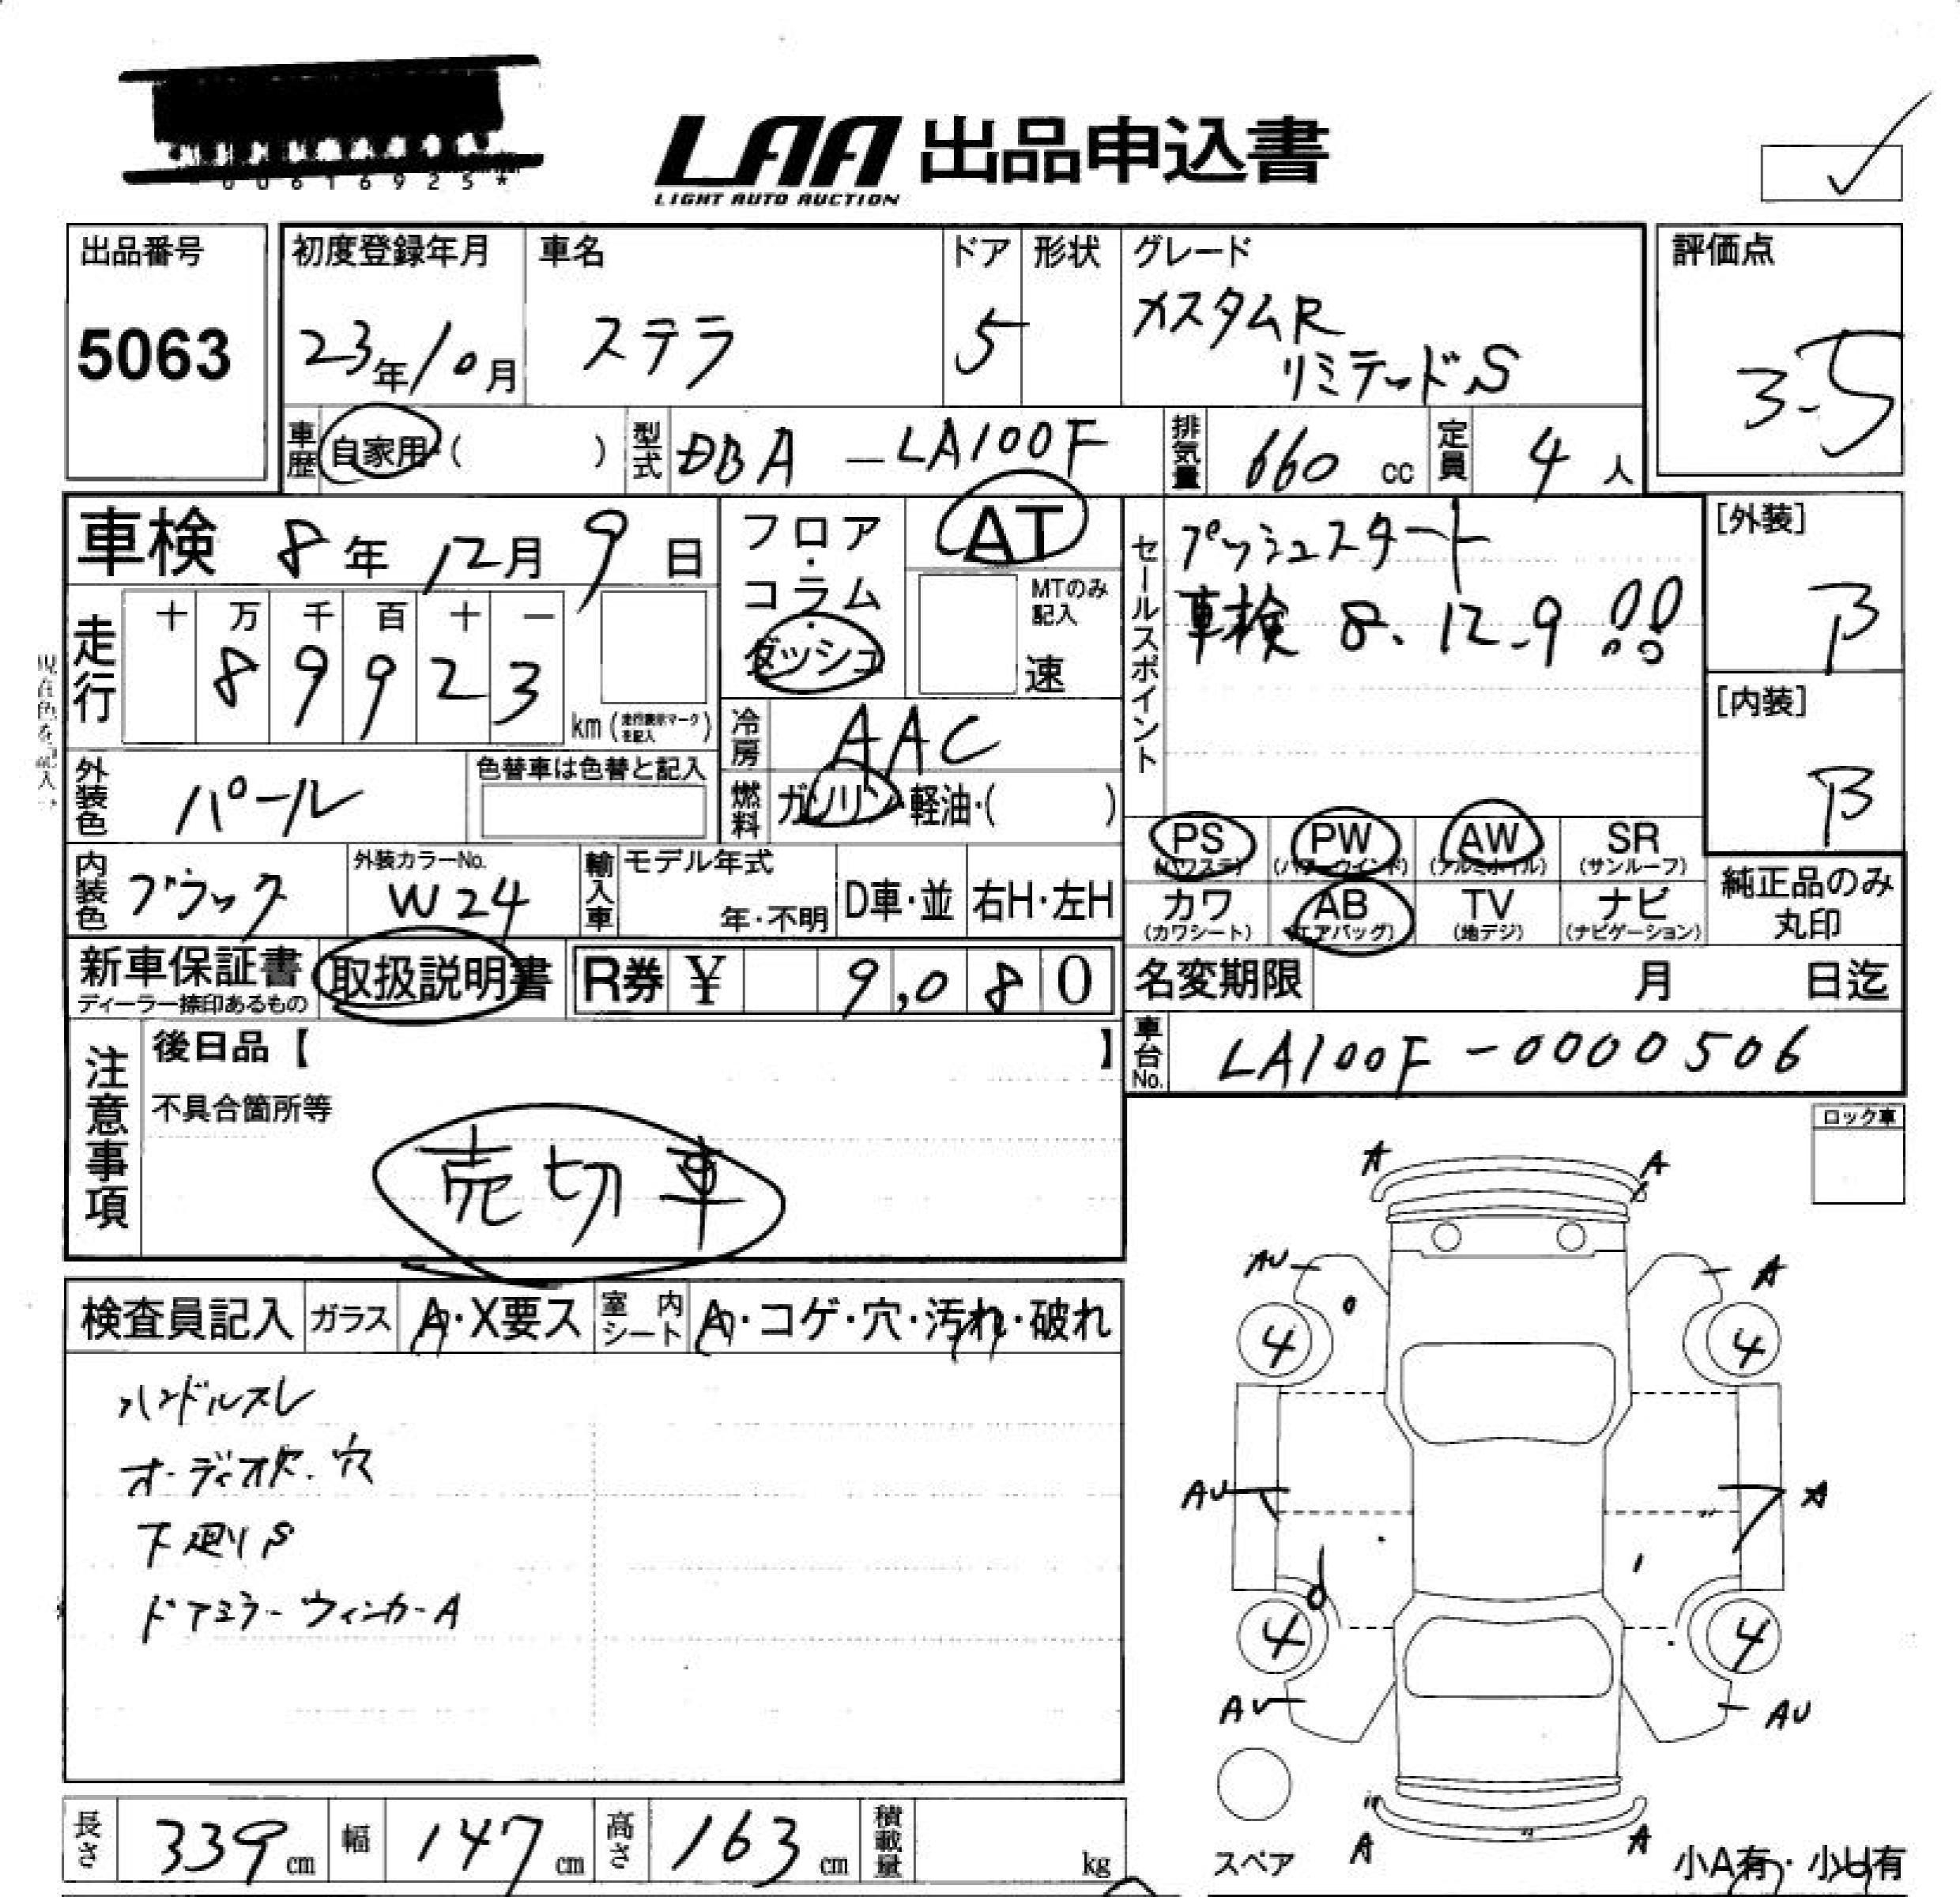 00616925*
LAA 出品申込書
LIGHT AUTO AUCTION
出品番号
5063
初度登録年月
23年10月
車名
ステラ
ドア
5
形状
グレード
カスタムR
リミテッドS
評価点
3.5
車歴 自家用・( )
型式 DBA-LA100F
排気量 660 cc
定員 4人
車検 8年12月9日
フロア・コラム・ダッシュ
AT
MTのみ記入
速
走行
十 万 千 百 十 一
8 9 9 2 3
km(走行表示マークを記入)
現在色を記入→
冷房 AAC
燃料 ガソリン・軽油・( )
外装色 パール
色替車は色替と記入
内装色 ブラック
外装カラーNo.
W24
輸入車
モデル年式
年・不明
D車・並
右H・左H
セールスポイント
プッシュスタート
車検 8.12.9!!
[外装]
B
[内装]
B
PS
(パワステ)
PW
(パワーウインド)
AW
(アルミホイル)
SR
(サンルーフ)
カワ
(カワシート)
AB
(エアバッグ)
TV
(地デジ)
ナビ
(ナビゲーション)
純正品のみ
丸印
新車保証書
ディーラー捺印あるもの
取扱説明書
R券 ¥ 9,080
名変期限 月 日迄
車台No. LA100F-0000506
注意事項
後日品【 】
不具合箇所等
売切車
ロック車
検査員記入
ガラス A・X要ス
室内シート A・コゲ・穴・汚れ・破れ
ハンドルスレ
オーディオ欠.穴
下廻りS
ドアミラーウィンカーA
A A
AU A
4 4
AU A
4 4
AU AU
A A
スペア
小A有・小U有
長さ 339cm
幅 147cm
高さ 163cm
積載量 kg